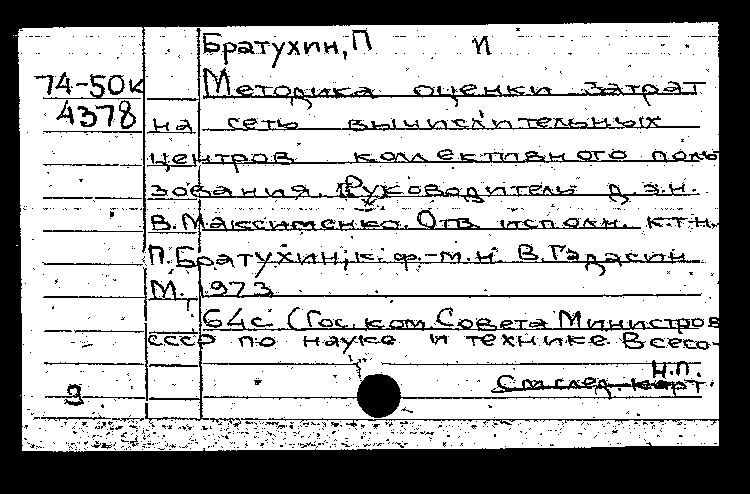 Братухин, П И
74-50к Методика оценки затрат
4378 на сеть вычислительных
центров коллективного поль
зования. Руководитель д.э.н.
В. Максименко. Отв. исполн. к.т.н.
П. Братухин, к. ф.-м.н В. Гадасин
М., 1973
64с (Гос. ком. Совета Министров
СССР по науке и технике. Всесо-
н.п.
9 См. след. карт.